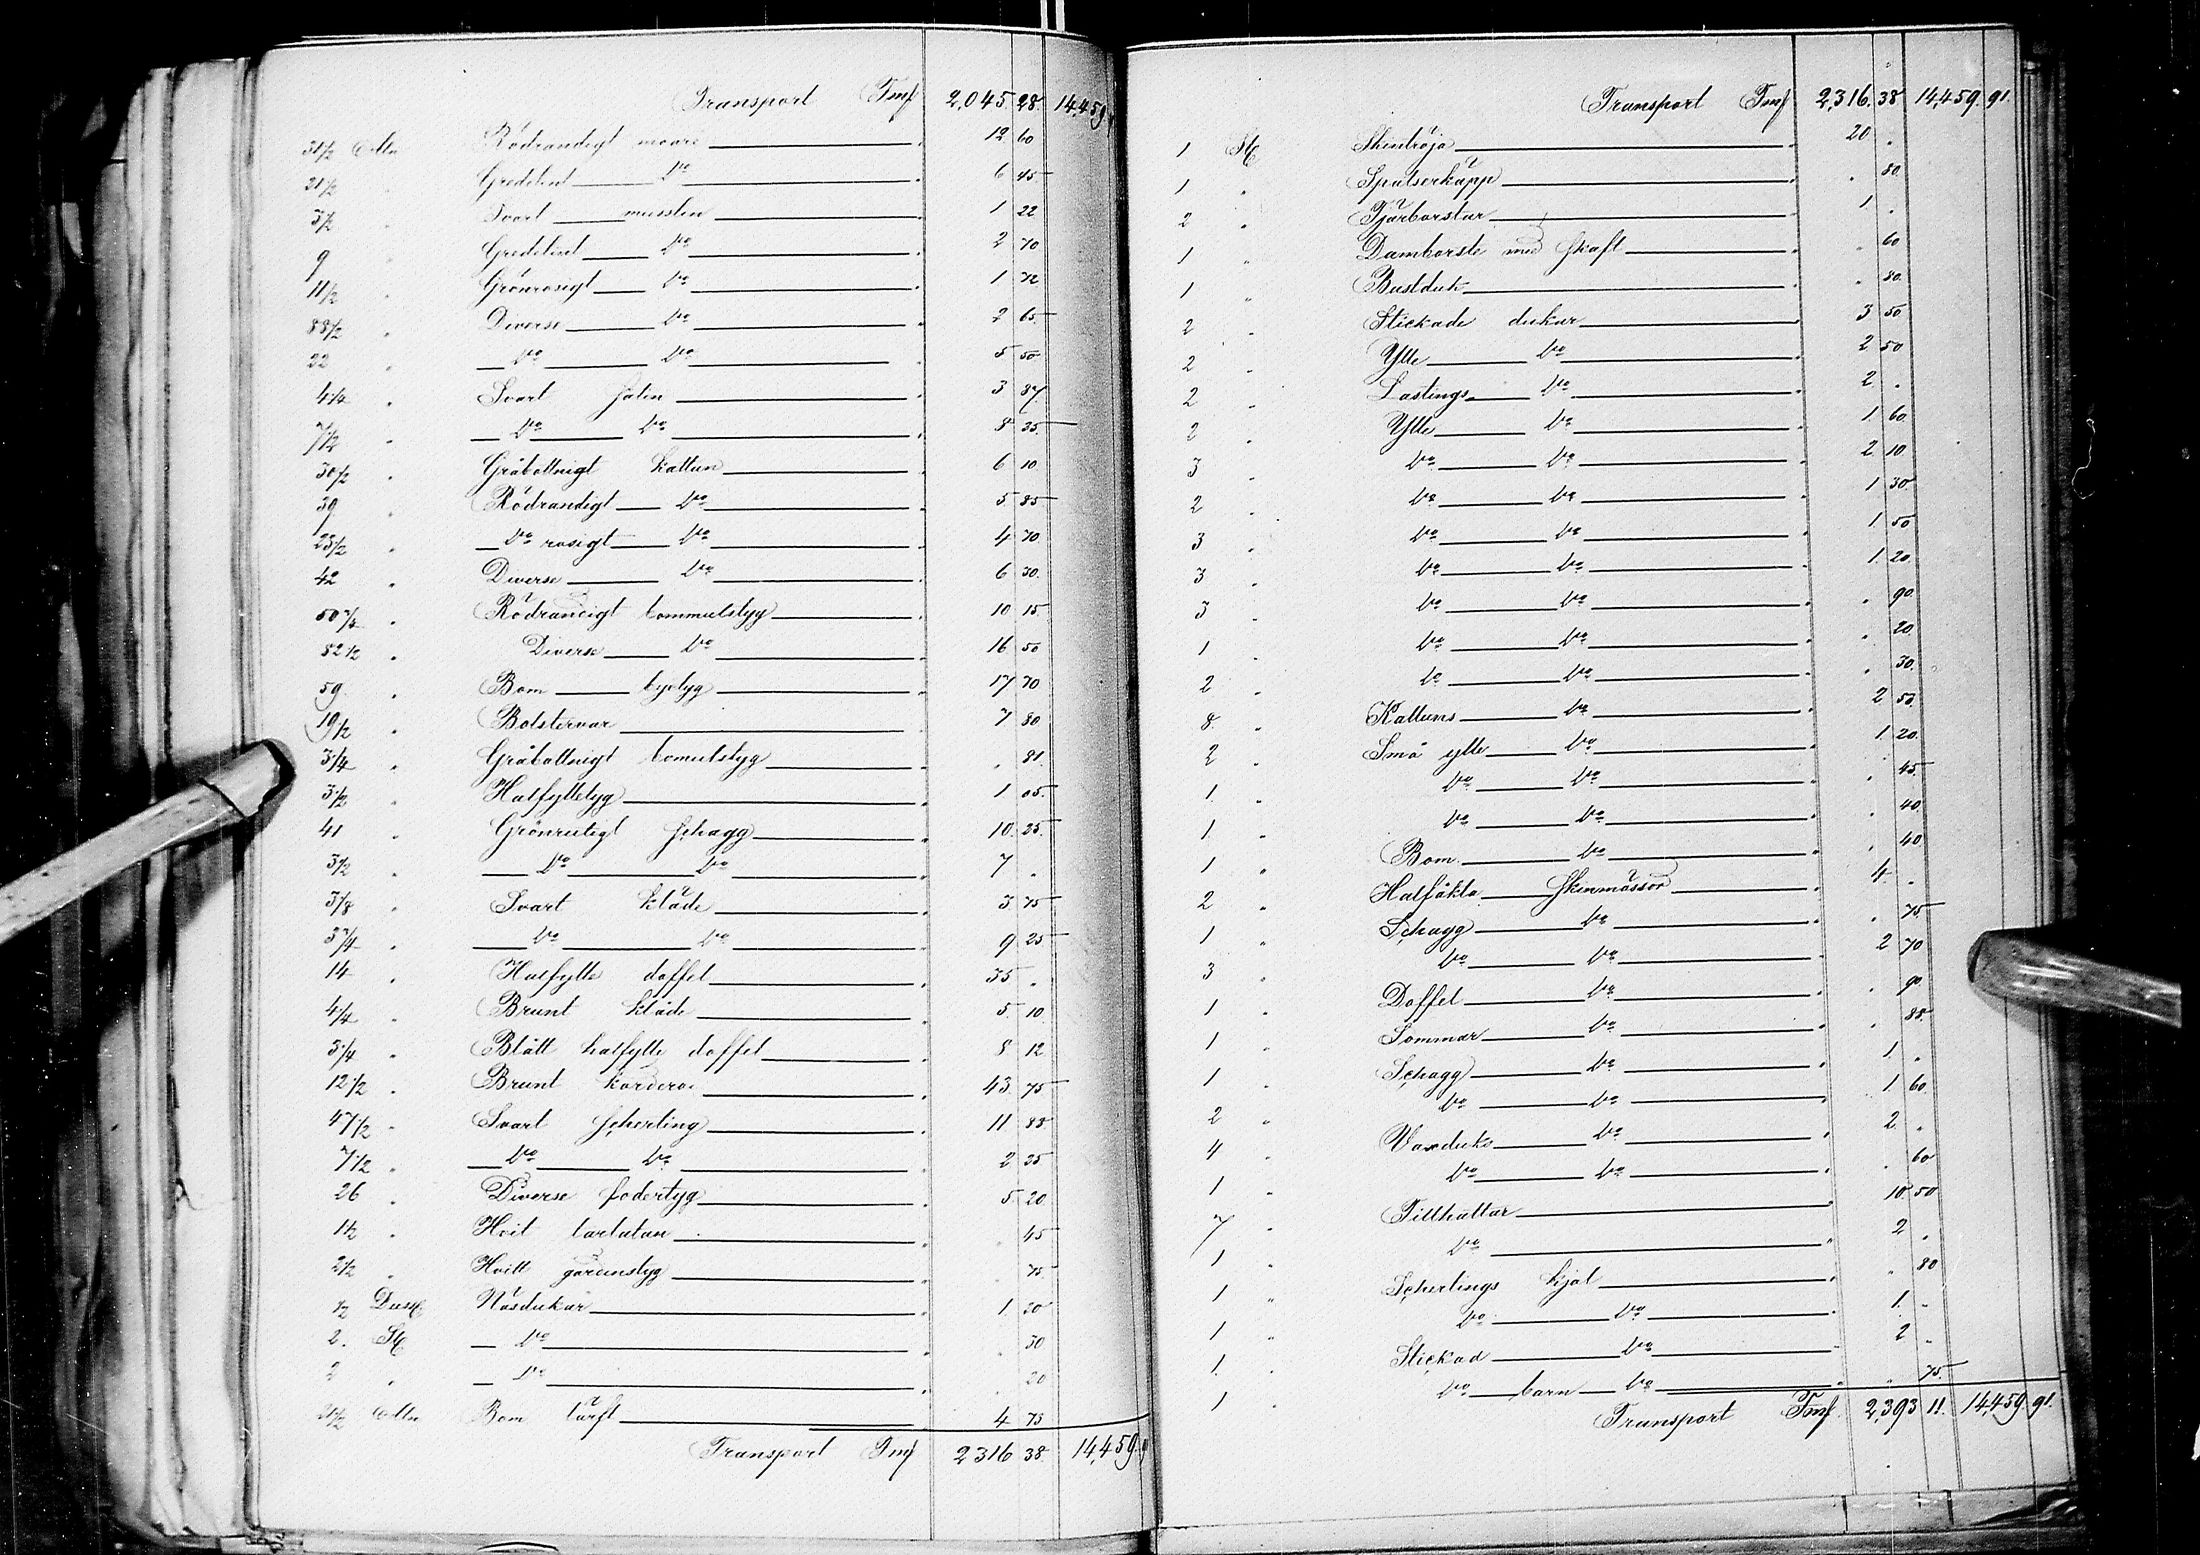 Transport Fmf 2,045 28. 14,459
31 1/2 Alln Rödrandigt moaré 12 60
21 1/2 " Gredelint do 6 45
3 1/2 " Svart musslin 1 22
9 " Gredelint do 2 70
11 1/2 " Grönrosigt do 1 72
88 1/2 " Diverse do 2 65
22 " do do 5 50
4 1/4 " Svart satin 3 87
7 1/2 " do do 8 35
30 1/2 " Gråbottnigt kattun 6 10
39 " Rödrandigt do 5 85
23 1/2 " do rosigt do 4 70
42 " Diverse do 6 30.
50 3/4 " Rödrandigt bommulstyg 10 15
82 1/2 " Diverse do 16 50
59 " Bom byxtyg 17 70
19 1/2 " Bolstervar 7 80
3 1/4 " Gråbottnigt bomulstyg " 81.
3 1/2 " Halfylletyg 1 05.
41 " Grönrutigt schagg 10. 25.
3 1/2 " do do 7 "
3/8 " Svart kläde 3 75
3 3/4 " do do 9 25
14 " Halfylle doffel 35 "
4/4 " Brunt kläde 5. 10.
3 1/4 " Blått halfylle doffel 8 12
12 1/2 " Brunt korderoi 43. 75
47 1/2 " Svart scherting 11 88
7 1/2 " do do 2 25
26 " Diverse fodertyg 5. 20.
1 1/2 " Hvit tarlatan " 45
2 1/2 " Hvitt gardinstyg " 75.
1/2 Dus Näsdukar 1. 20
2. St do " 30
2 " do " 20
Alln Bom lärft 4 75
Transport Fmf 2316 38 14,459.
Transport Fmf 2,316. 38 14,459. 91.
1 St Skintröja 20. "
1 " Spatserkäpp " 80.
2 " Tjärborstar 1 "
1 " Damborste med skaft " 60
1 " Bustduk " 80.
2 " Stickade dukar 3 50
2 " Ylle do 2 50
2 " Lastings do 2. "
2 " Ylle do 1. 60
3 " do do 2. 10
2 " do do 1 30.
3 " do do 1. 50
3 " do do 1. 20.
3 " do do " 90.
1 " do do " 20.
2 " do do " 30.
8. " Kattuns do 2 50.
2 " Små ylle do 1 20.
1. " do do " 45.
1 " do do " 40
1 " Bom. do " 40
2 " Halfäkta skinmössor 4. "
1 " Schagg do " 75
3 " do do 2 70
1 " Doffel do " 90
1 " Sommar do " 88.
1 " Schagg do 1 "
2 " do do 1 60.
4 " Vaxduks do 2 "
1 " do do " 60
7 " Filthattar 10. 50
1 " do 2 "
1 " Schertings kjol " 80
1 " do do 1. "
1. " Stickad do 2 "
1 " do barn do " 75.
Transport Fmf. 2,393 11. 14,459 91.